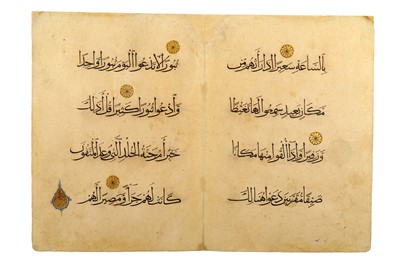 بالساعة سعيرا اذا راتهم من
مكان بعيد سمعوا لها تغيظا
وزفيرا واذا القوا منها مكانا
ضيقا مقرنين دعوا هنالك
ثبورا لا تدعوا اليوم ثبورا واحدا
وادعوا ثبورا كثيرا قل اذلك
خير ام جنة الخلد التي وعد المتقون
كانت لهم جزا ومصيرا لهم